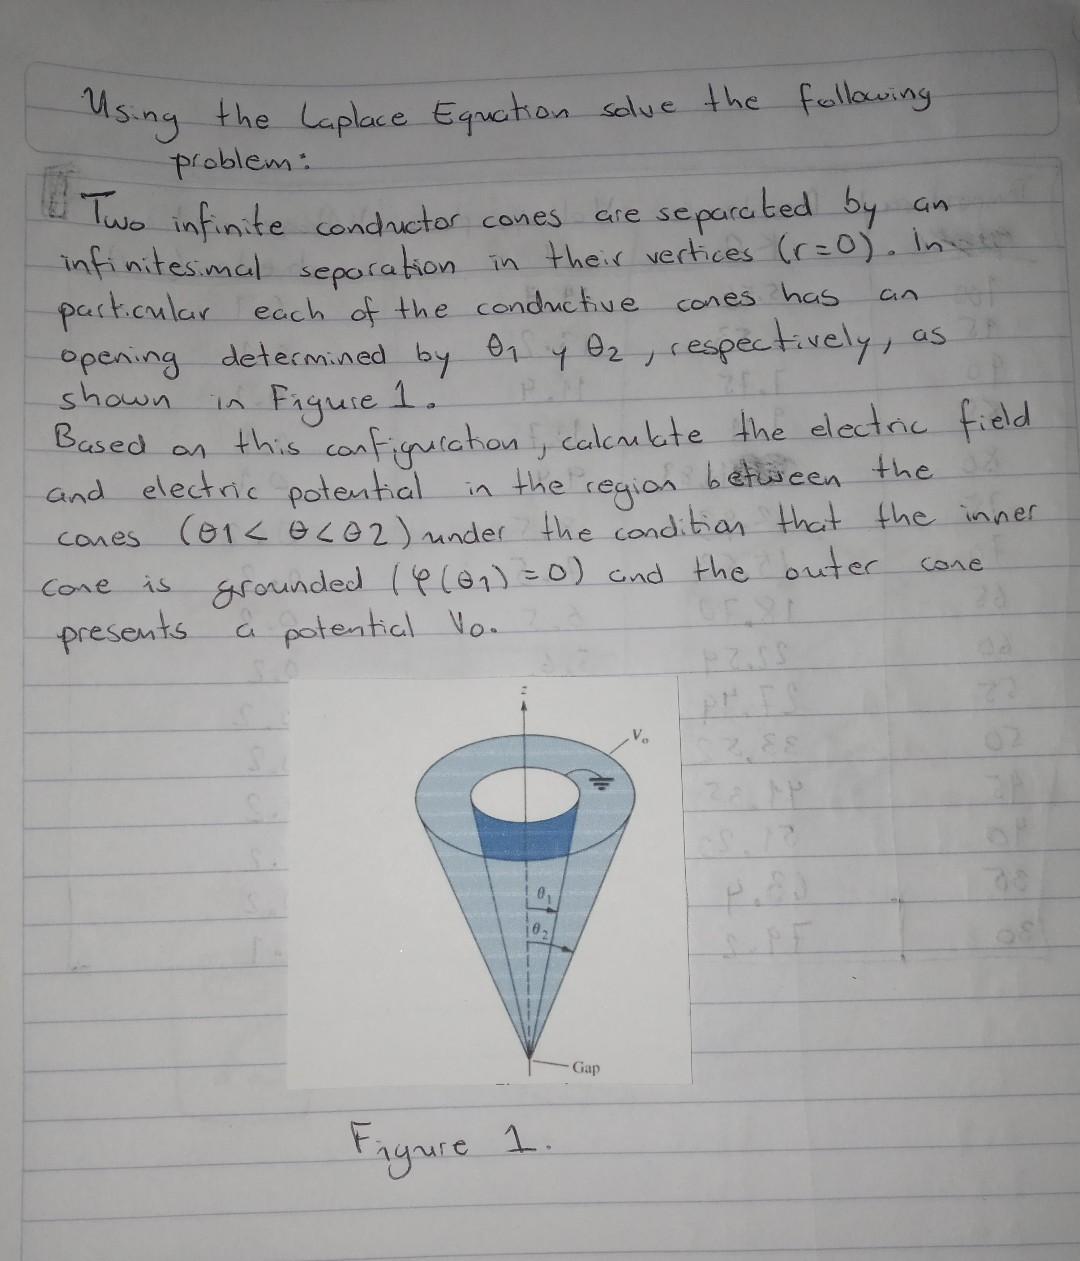 Using the Laplace Equation solve the following
problem:
Two infinite conductor cones are separated by an
infinitesimal separation in their vertices (r=0). In
particular each of the conductive cones has an
opening determined by θ1 y θ2, respectively, as
shown in Figure 1.
Based on this configuration, calculate the electric field
and electric potential in the region between the
cones (θ1 < θ < θ2) under the condition that the inner
cone is grounded (φ(θ1) = 0) and the outer cone
presents a potential Vo.
z
Vo
θ1
θ2
Gap
Figure 1.